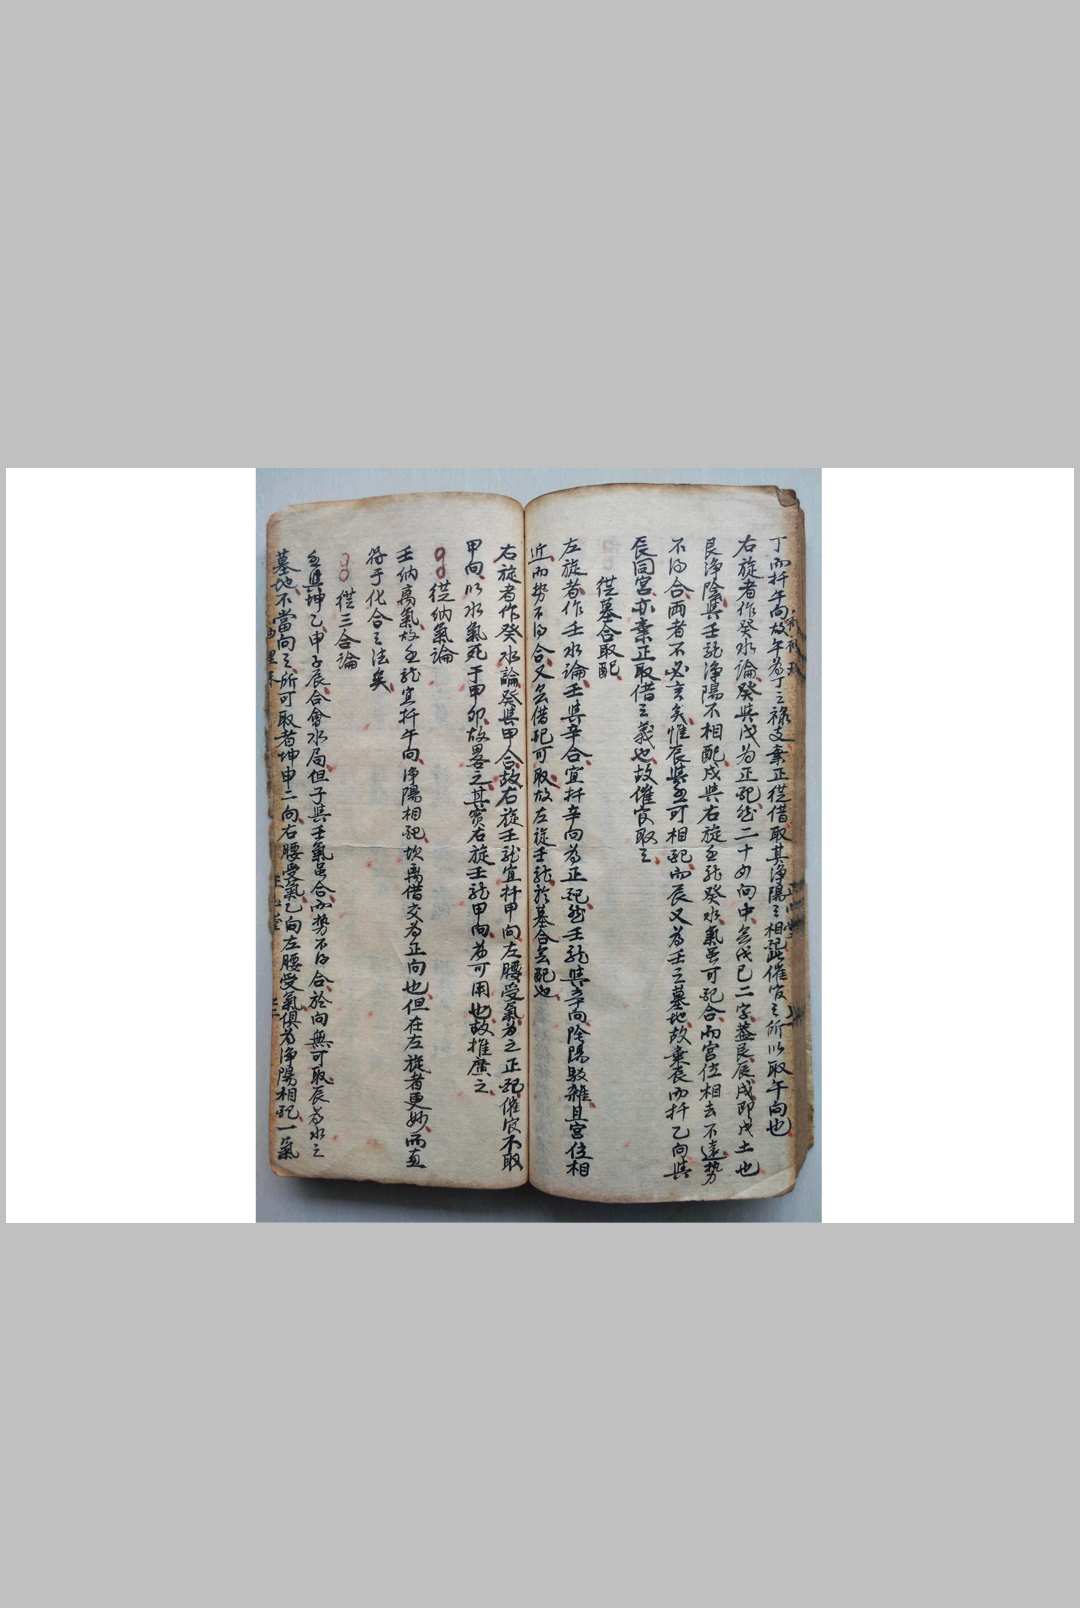 丁而扦午向故午為丁之祿支棄正從借取其淨陽之相配催官之所以取午向也
右旋者作癸水論癸與戊為正配然二十四向中無戊己二字蓋艮辰戌即戊土也
艮淨陰與壬龍淨陽不相配戌與右旋壬龍癸水氣雖可配合而宮位相去不遠勢
不得合兩者不必言矣惟辰與壬可相配而辰又為壬之墓地故棄辰而扦乙向與
辰同宮亦棄正取借之義也故催官取之
從墓合取配
左旋者作壬水論壬與辛合宜扦辛向為正配然壬龍與辛向陰陽駁雜且宮位相
近而勢不得合又無借配可取故左旋壬龍於墓合無配也
右旋者作癸水論癸與甲合故右旋壬龍宜扦甲向左腰受氣為之正配催官不取
甲向以水氣死于甲卯故畧之其實右旋壬龍甲向為可用也故推廣之
從納氣論
壬納离氣故壬龍宜扦午向淨陽相配坎离借交為正向也但在左旋者更妙而直
符于化合之法矣
從三合論
壬與坤乙申子辰合會水局但子與壬氣虽合而勢不得合於向無可取辰為水之
墓地不當向之所可取者坤申二向右腰受氣乙向左腰受氣俱為淨陽相配一氣